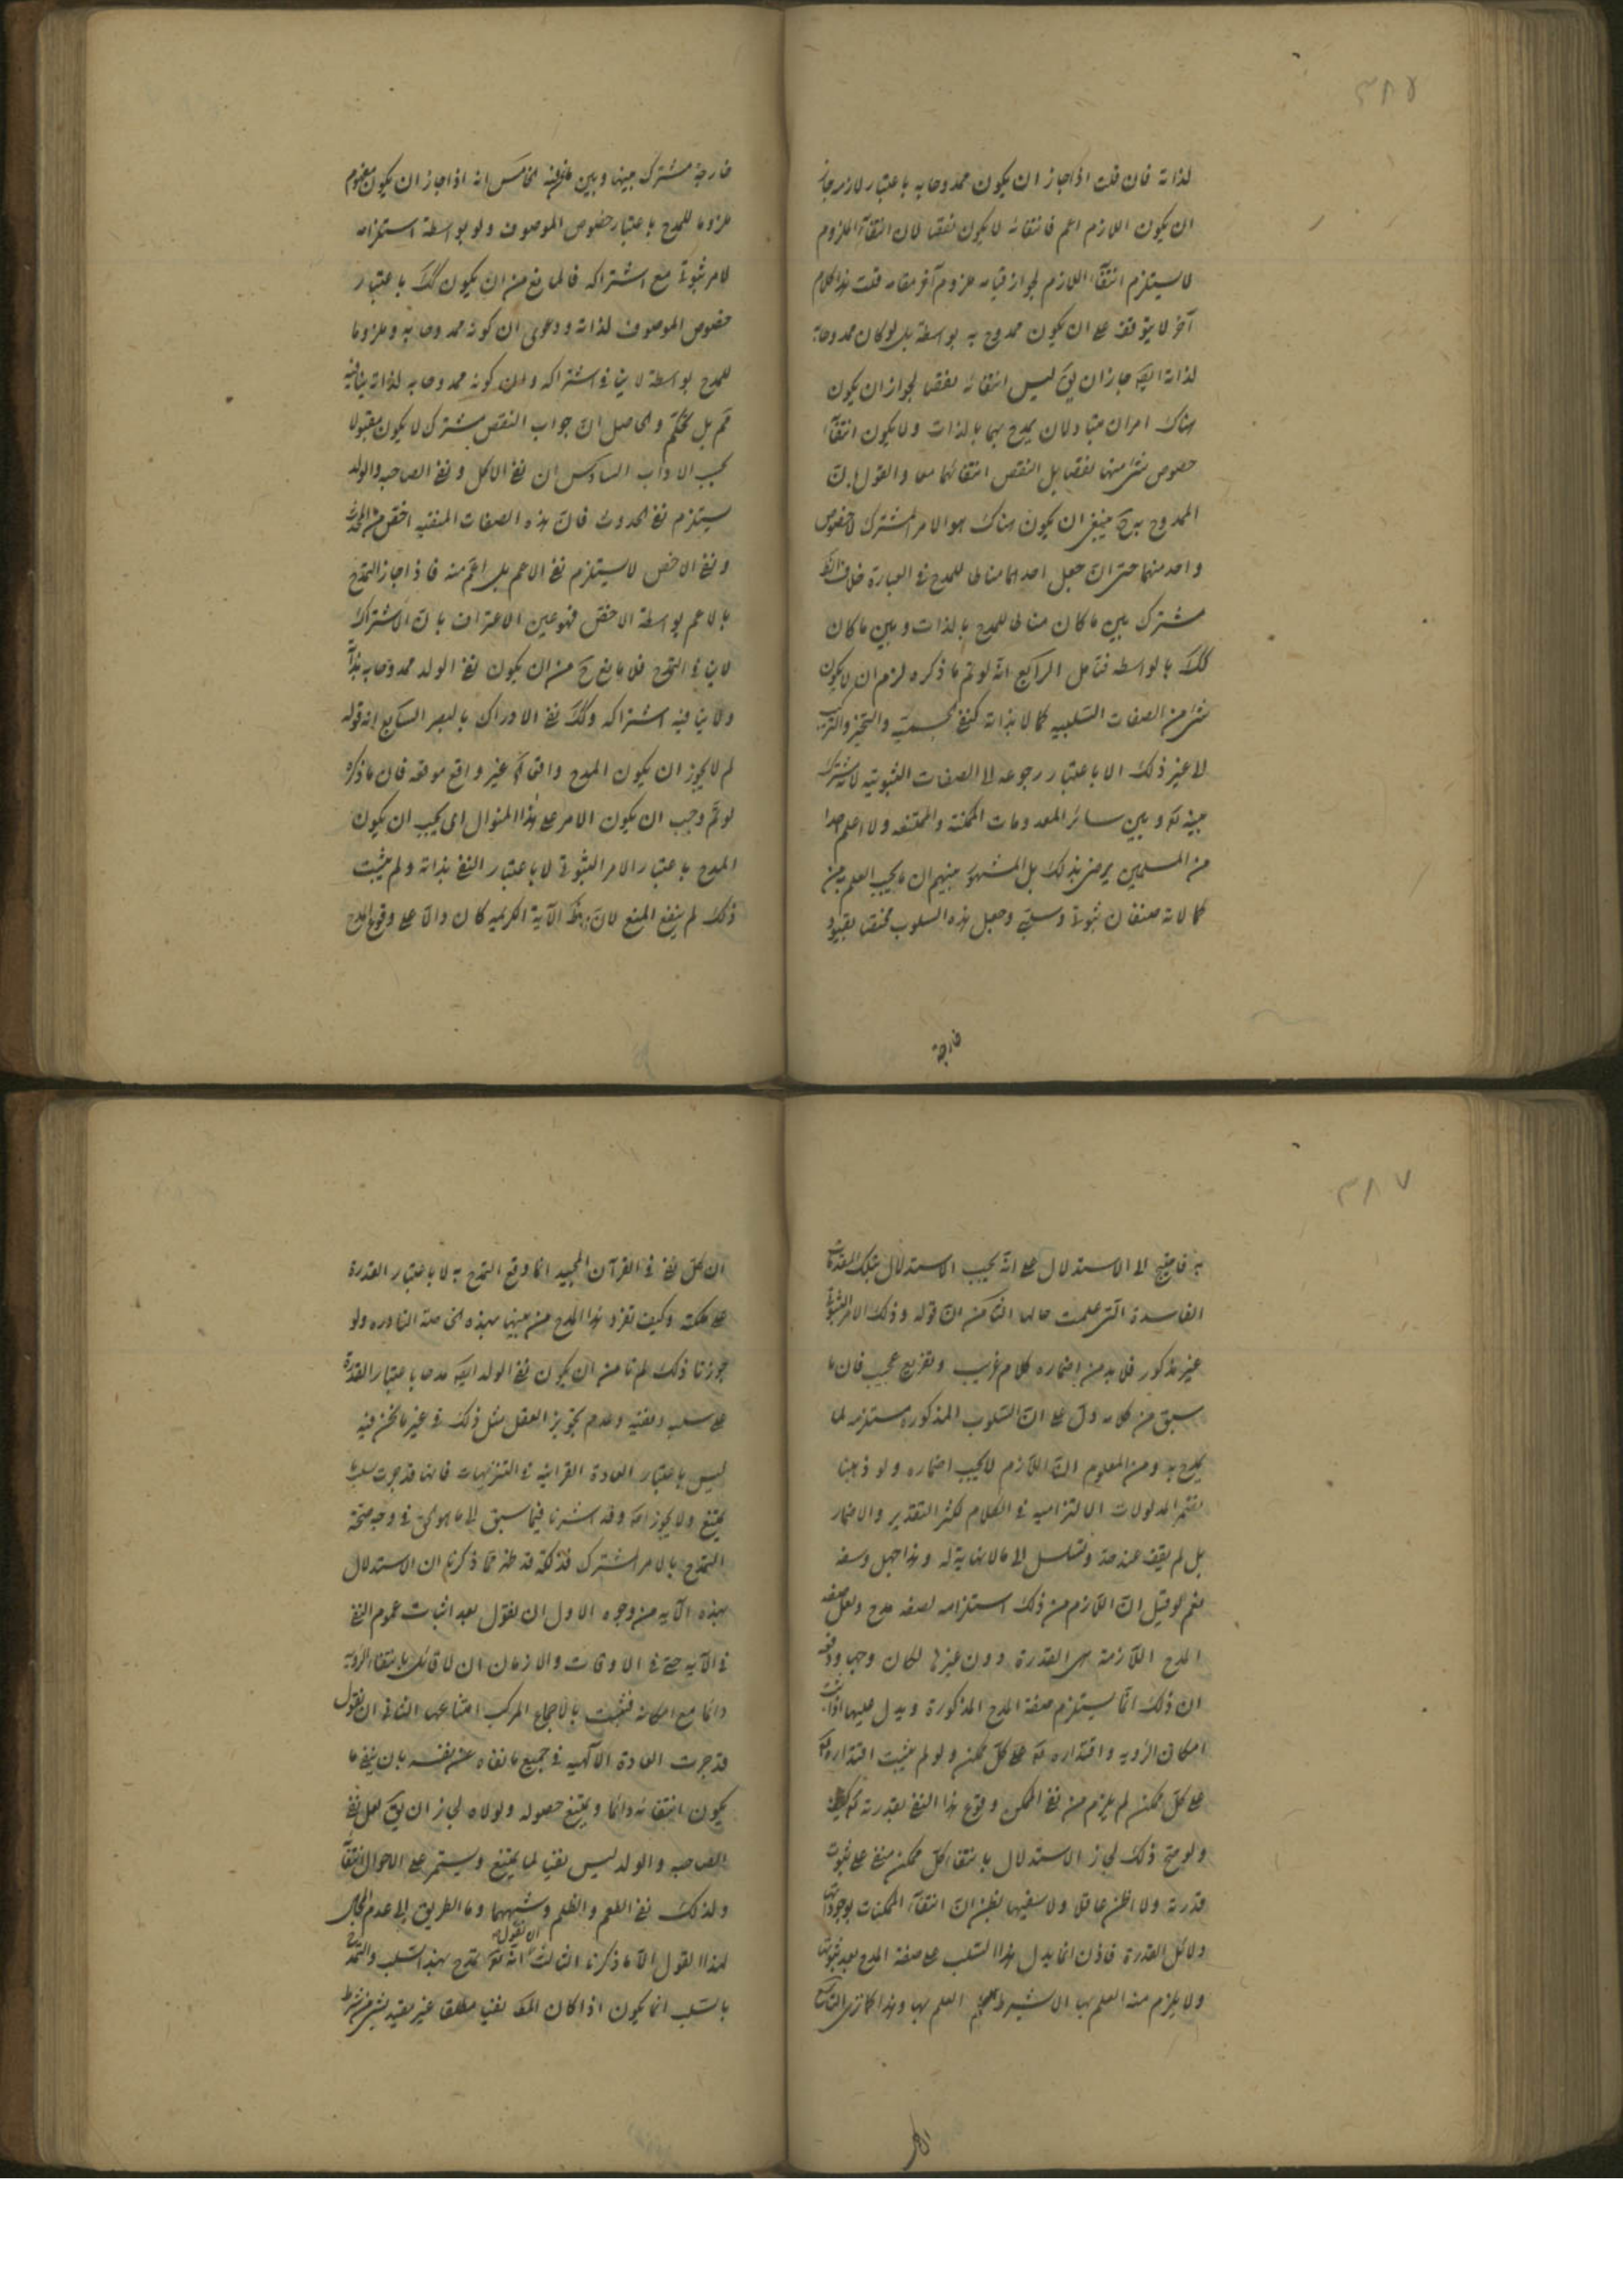 ٣٨٧
لذاته فان قلت اذا جاز ان يكون ممدوحا به باعتبار لازم جاز
ان يكون اللازم اعم فانتفائه لا يكون نقصا لان انتفآء الملزوم
لا يستلزم انتفآء اللازم لجواز قيام ملزوم آخر مقامه قلت هذا كلام
آخر لا يتوقف على ان يكون ممدوح به بواسطة بل لو كان ممدوحا به
لذاته ايضا جاز ان يق ليس انتفائه نقصا لجواز ان يكون
هناك امران متبادلان يمدح بهما بالذات ولا يكون انتفآء
خصوص شئ منهما نقصا بل النقص انتفائهما معا والقول بان
الممدوح به ح ينبغى ان يكون هناك هو الامر المشترك لا خصوص
واحد منهما حتى ان جعل احدهما مناطا للمدح فى العبارة خلاف
مشترك بين ما كان مناطا للمدح بالذات وبين ما كان
كك بالواسطه فتأمل الرابع انه لو تم ما ذكره لزم ان لا يكون
شئ من الصفات السلبيه كمالا بذاته كنفى الجسمية والتحيز والتركب
الى غير ذلك الا باعتبار رجوعه الى الصفات الثبوتيه لاشتراك
بينه تع وبين سائر المعدومات الممكنة والممتنعه ولا اعلم احدا
من المسلمين يرضى بذلك بل المشهور بينهم ان ما يجب العلم به من
كمالاته صنفان ثبوتى وسلبى وجعل هذه السلوب مختصا بقيود
خارجة
خارجة مشترك بينها وبين الخامس انه اذا جاز ان يكون مفهوم
ملزوما للمدح باعتبار خصوص الموصوف ولو بواسطة استلزامه
لامر ثبوتى مع اشتراكه فالمانع من ان يكون كك باعتبار
خصوص الموصوف لذاته ودعوى ان كونه ممدوحا به وملزوما
للمدح بواسطة لا ينافى اشتراكه وان كونه ممدوحا به لذاته ينافيه
تم بل تحكم والحاصل ان جواب النقض مشترك لا يكون مقبولا
بحسب الاداب السادس ان نفى الاكل ونفى الصاحبه والولد
يستلزم نفى الحدوث فان هذه الصفات المنفيه اخص من الحدوث
ونفى الاخص لا يستلزم نفى الاعم بل اعم منه فاذا جاز التمدح
بالاعم بواسطة الاخص فهو عين الاعتراف بان الاشتراك
لا ينافى التمدح فلا مانع ح من ان يكون نفى الولد ممدوحا به بذاته
ولا ينافيه اشتراكه وكك نفى الادراك بالبصر السابع ان قوله
لم لا يجوز ان يكون المدح واقعا غير واقع موقعه فان ما ذكره
لو تم وجب ان يكون الامر على هذا المنوال اى يجب ان يكون
المدح باعتبار الامر الثبوتى لا باعتبار النفى بذاته ولم يثبت
ذلك لم ينفع المنع لان الآية الكريمه كان دالا على وقوع المدح
٣٨٧
به فاحتيج الى الاستدلال على انه يجب الاستدلال بتلك المقدمات
الفاسدة التى علمت حالها الثامن ان قوله وذلك الامر الثبوتى
غير مذكور فلا بد من اضماره كلام غريب وتفريع عجيب فان ما
سبق من كلامه دل على ان السلوب المذكوره مستلزمه لما
يمدح به ومن المعلوم ان اللازم لا يجب اضماره ولو ذهبنا
نضمر المدلولات الالتزاميه فى الكلام لكثر التقدير والاضمار
بل لم يقف عند حد وتسلسل الى ما لا نهاية له وهذا جهل وسفه
نعم لو قيل ان اللازم من ذلك استلزامه لصفه مدح ولعل صفه
المدح اللازمة هى القدرة دون غيرها لكان وجها ودفعه
ان ذلك انما يستلزم صفة المدح المذكورة ويدل عليها اذا ثبت
امكان الرؤيه واقتداره تع على كل ممكن ولو لم يثبت اقتداره تع
على كل ممكن لم يلزم من نفى الممكن وقوع هذا النفى بقدرته تع
ولو صح ذلك لجاز الاستدلال بانتفا كل ممكن منفى على ثبوت
قدرته ولا اظن عاقلا ولا سفيها يظن ان انتفآء الممكنات بوجوداتها
دلائل القدرة فاذن انما يدل هذا السلب على صفة المدح بعد ثبوتها
ولا يلزم منه العلم بها الا بشرط العلم بها وهذا كما ترى التاسع
ان كل نفى فى القرآن المجيد انما وقع التمدح به لا باعتبار القدرة
على ملكته وكيف تفرد هذا المدح من بينها بهذه الخاصة النادره ولو
جوزنا ذلك لم نأمن ان يكون نفى الولد ايضا مدحا باعتبار القدرة
على سلبه ونفيه وعدم تجويز العقل مثل ذلك فى غير ما نحن فيه
ليس باعتبار العادة القرانيه فى التنزيهات فانها قد جرت بسلب ما
يمتنع ولا يجوز له وقد اشرنا فيما سبق الى ما هو الحق فى وجه صحة
التمدح بالامر المشترك فتذكر قد ظهر مما ذكرنا ان الاستدلال
بهذه الآيه من وجوه الاول ان نقول بعد اثبات عموم النفى
فى الآيه حتى فى الاوقات والازمان ان لا قائل بانتفاء الرؤية
دائما مع امكانه فثبت بالاجماع المركب امتناعها الثانى ان نقول
قد جرت العادة الآلهيه فى جميع ما نفاه عن نفسه بان ينفى ما
يكون انتفائه دائما ويمتنع حصوله ولولاه لجاز ان يق لعل نفى
الصاحبه والولد ليس نفيا لما يمتنع ويستمر على الاحوال انتفآء
وكذلك نفى اللعم والظلم وشبههما وما الطريق الى عدم
لهذا القول الا ما ذكرنا الثالث ان نقول انه تع تمدح بهذا السلب والتمدح
بالسلب انما يكون اذا كان المط نفيا مطلقا غير مقيد بشئ من شرط